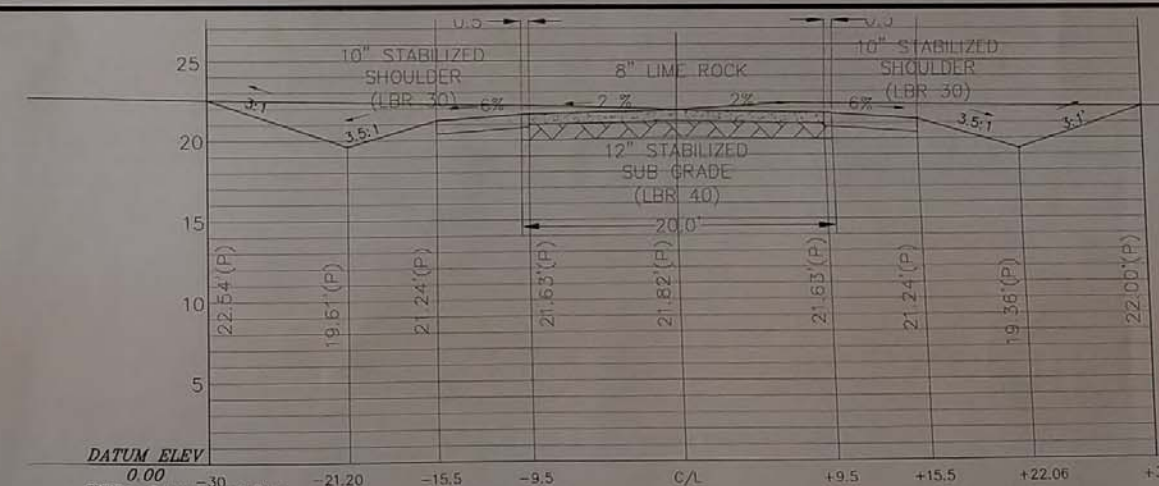 25
20
15
10
5
10" STABILIZED
SHOULDER
(LBR 30)
8" LIME ROCK
10" STABILIZED
SHOULDER
(LBR 30)
3:1
3.5:1
6%
2 %
2%
6%
3.5:1
3:1
12" STABILIZED
SUB GRADE
(LBR 40)
20.0'
22.54'(P)
19.61'(P)
21.24'(P)
21.63'(P)
21.82'(P)
21.63'(P)
21.24'(P)
19.36'(P)
22.00'(P)
DATUM ELEV
0.00
-30
-21.20
-15.5
-9.5
C/L
+9.5
+15.5
+22.06